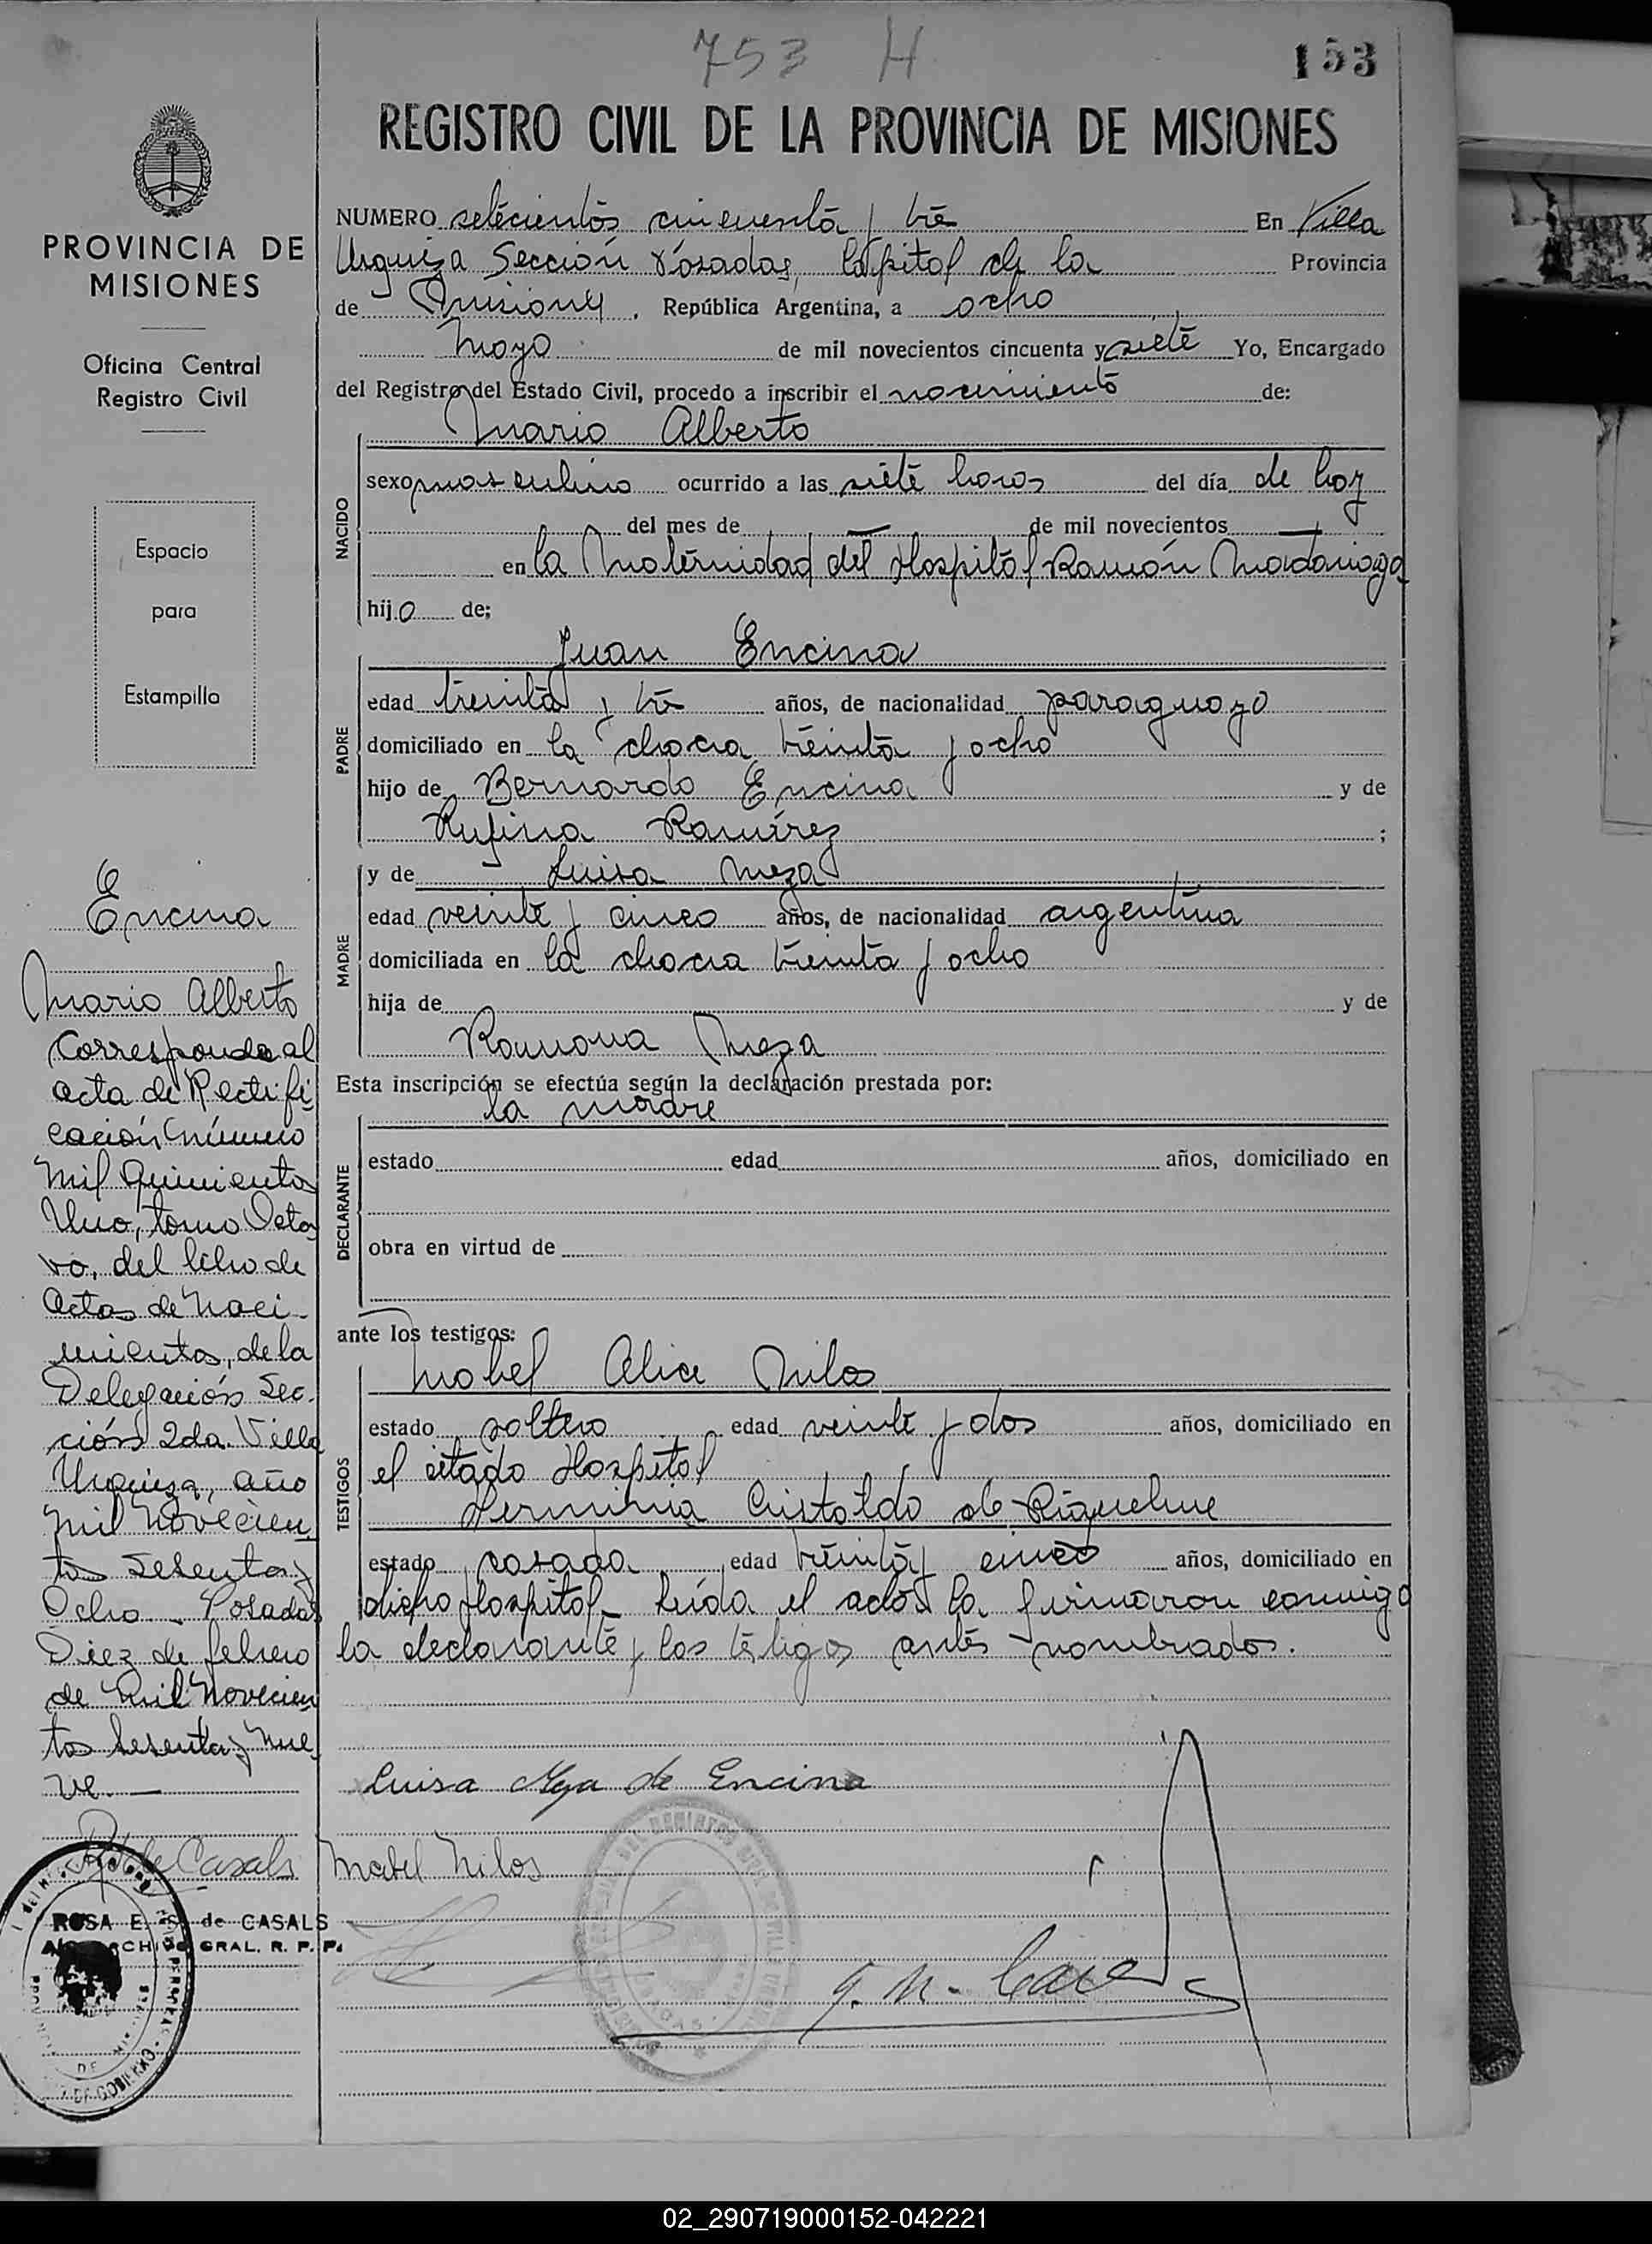 753 H
153
REGISTRO CIVIL DE LA PROVINCIA DE MISIONES
PROVINCIA DE
MISIONES
Oficina Central
Registro Civil
Espacio
para
Estampilla
Encina
Mario Alberto
Corresponde al
acta de Rectifi
cación número
mil quinientos
Uno, tomo Octa
vo, del libro de
Actas de Naci-
mientos, de la
Delegación Sec.
ción 2da. Villa
Urquiza, año
mil novecien
tos sesenta y
Ocho - Posadas
Diez de febrero
de mil novecien
tos sesenta y nue
ve.—
de Casals
ROSA E. S. de CASALS
ARCHIVO GRAL. R. P. P.
NUMERO setecientos cincuenta y tres En Villa
Urquiza Sección Posadas, Capital de la Provincia
de Misiones, República Argentina, a ocho
Mayo de mil novecientos cincuenta y siete Yo, Encargado
del Registro del Estado Civil, procedo a inscribir el nacimiento de:
NACIDO
Mario Alberto
sexo masculino ocurrido a las siete horas del día de hoy
del mes de — de mil novecientos —
en la Maternidad del Hospital Ramón Madariaga
hijo de;
PADRE
Juan Encina
edad treinta y tres años, de nacionalidad paraguayo
domiciliado en la chacra treinta y ocho
hijo de Bernardo Encina y de
Rufina Ramírez ;
MADRE
y de Luisa Meza
edad veinte y cinco años, de nacionalidad argentina
domiciliada en la chacra treinta y ocho
hija de y de
Ramona Meza
Esta inscripción se efectúa según la declaración prestada por:
la madre
DECLARANTE
estado edad años, domiciliado en
obra en virtud de
ante los testigos:
TESTIGOS
Mabel Alice Milos
estado soltera edad veinte y dos años, domiciliado en
el citado Hospital
Herminia Cristaldo de Riquelme
estado casada edad treinta y cinco años, domiciliado en
dicho Hospital - Leída el acta la firmaron conmigo
la declarante y los testigos antes nombrados.
Luisa Meza de Encina
Mabel Milos
02_290719000152-042221